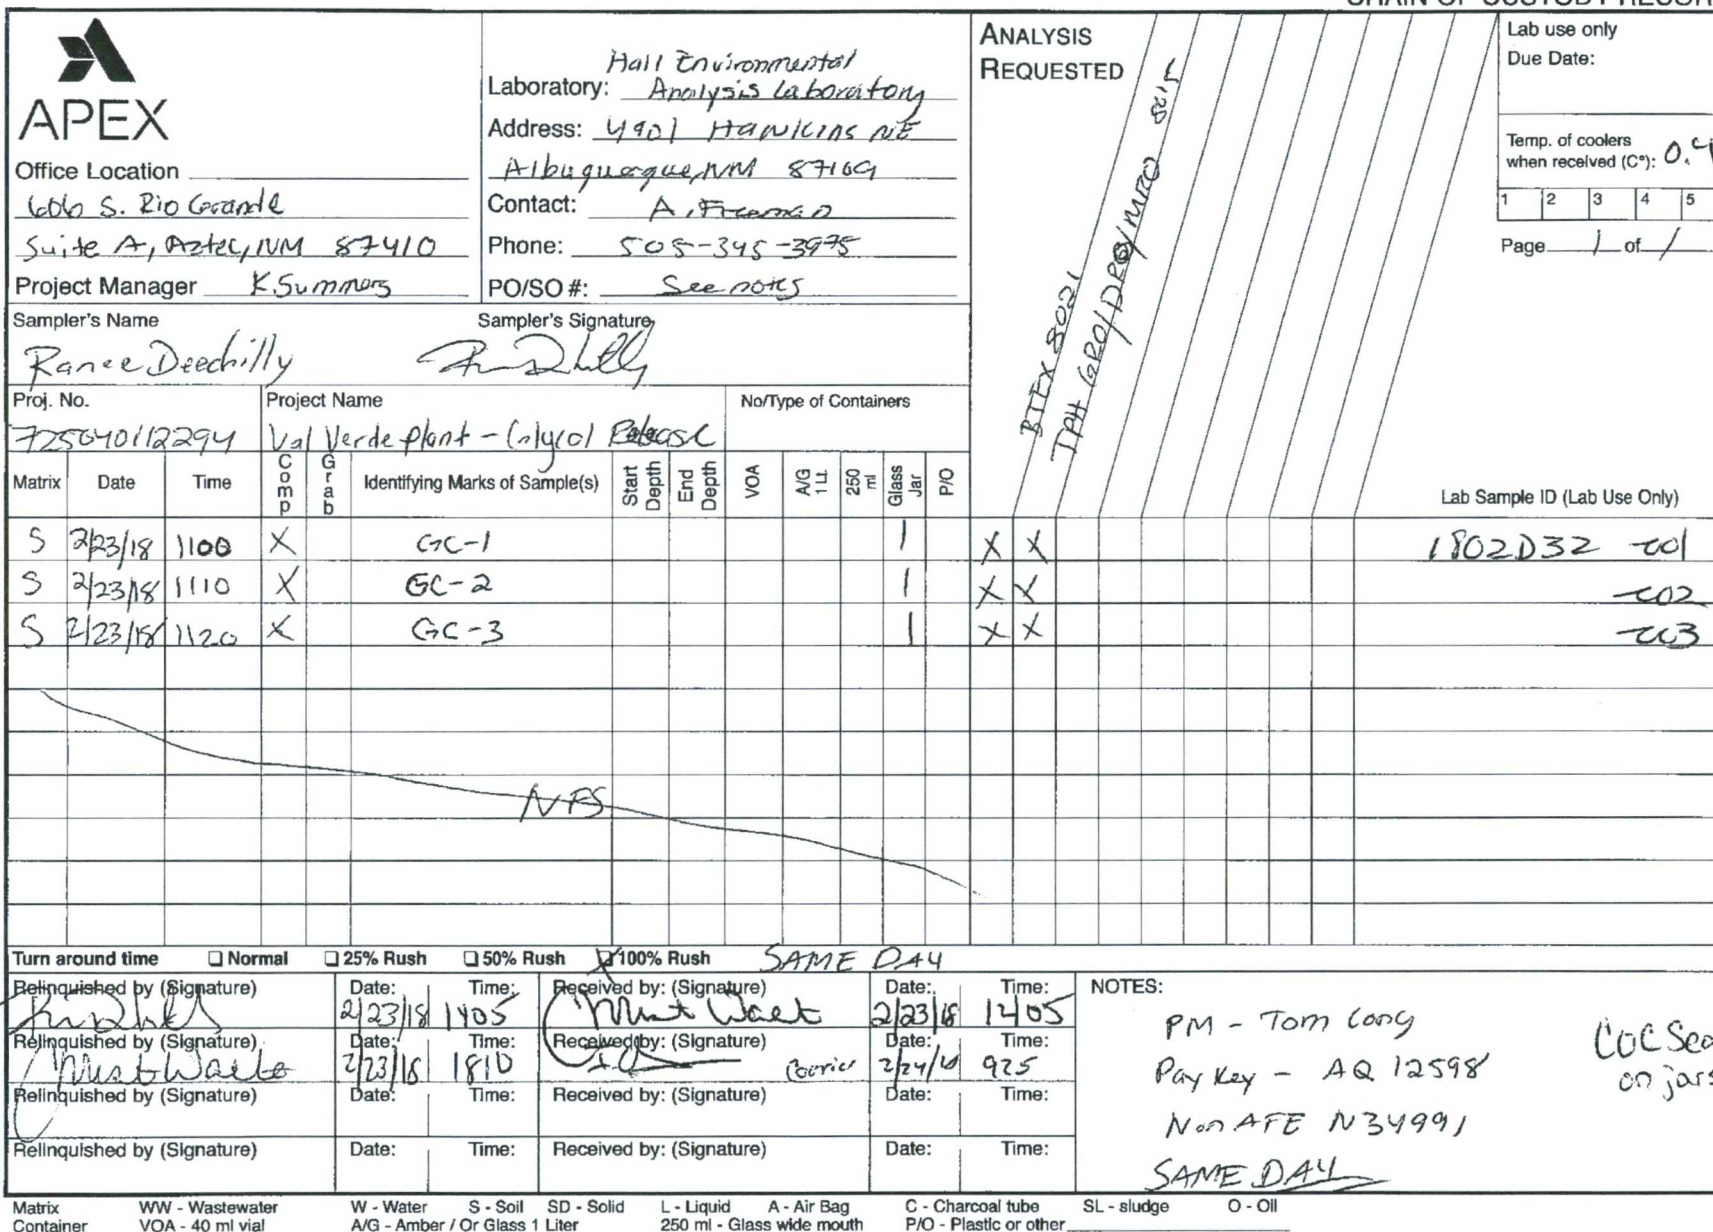 CHAIN OF CUSTODY RECOR
APEX
Office Location
606 S. Rio Grande
Suite A, Aztec, NM 87410
Project Manager K. Summers
Hall Environmental
Laboratory: Analysis Laboratory
Address: 4901 Hawkins NE
Albuquerque, NM 87109
Contact: A. Freeman
Phone: 505-345-3975
PO/SO #: See notes
ANALYSIS
REQUESTED
BTEX 8021
TPH GRO/DRO/MRO 8015
Lab use only
Due Date:
Temp. of coolers
when received (C°): 0.4
1 2 3 4 5
Page 1 of 1
Sampler's Name Sampler's Signature
Ranee Deechilly
Proj. No. Project Name No/Type of Containers
725040112294 Val Verde plant - Glycol Release
Matrix Date Time Comp Grab Identifying Marks of Sample(s) Start Depth End Depth VOA A/G 1 Lt. 250 ml Glass Jar P/O Lab Sample ID (Lab Use Only)
S 2/23/18 1100 X GC-1 1 X X 1802D32 -001
S 2/23/18 1110 X GC-2 1 X X -002
S 2/23/18 1120 X GC-3 1 X X -003
NFS
Turn around time Normal 25% Rush 50% Rush X 100% Rush SAME DAY
Relinquished by (Signature) Date: Time: Received by: (Signature) Date: Time:
2/23/18 1405 2/23/18 1405
Relinquished by (Signature) Date: Time: Received by: (Signature) Date: Time:
2/23/18 1810 Courier 2/24/18 925
Relinquished by (Signature) Date: Time: Received by: (Signature) Date: Time:
Relinquished by (Signature) Date: Time: Received by: (Signature) Date: Time:
NOTES:
PM - Tom Long
Pay Key - AQ 12598
Non AFE N34991
SAME DAY
COC Sea
on jars
Matrix WW - Wastewater W - Water S - Soil SD - Solid L - Liquid A - Air Bag C - Charcoal tube SL - sludge O - Oil
Container VOA - 40 ml vial A/G - Amber / Or Glass 1 Liter 250 ml - Glass wide mouth P/O - Plastic or other